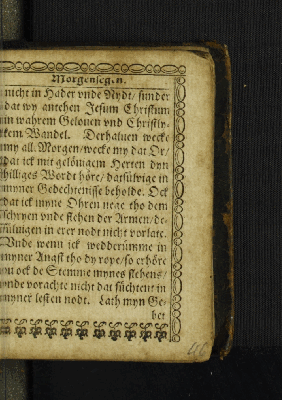 Morgensegen.
nicht in Hader vnde Nydt/ sunder
dat wy antehen Jesum Christum
in wahrem Gelouen vnd Christly-
kem Wandel. Derhaluen wecke
my all. Morgen/wecke my dat Or/
dat ick mit gelönigem Herten dyn
hilliges Wordt höre/ datsülvige in
myner Gedechtenisse beholde. Ock
dat ick myne Ohren nege tho dem
schryen vnde flehen der Armen/de-
sülvigen in erer nodt nicht vorlate.
Vnde wenn ick wedderümme in
myner Angst tho dy rope/so erhöre
ock de Stemme mynes flehens/
vnde vorachte nicht dat süchtent in
myner lesten nodt. Lath myn Ge-
bet